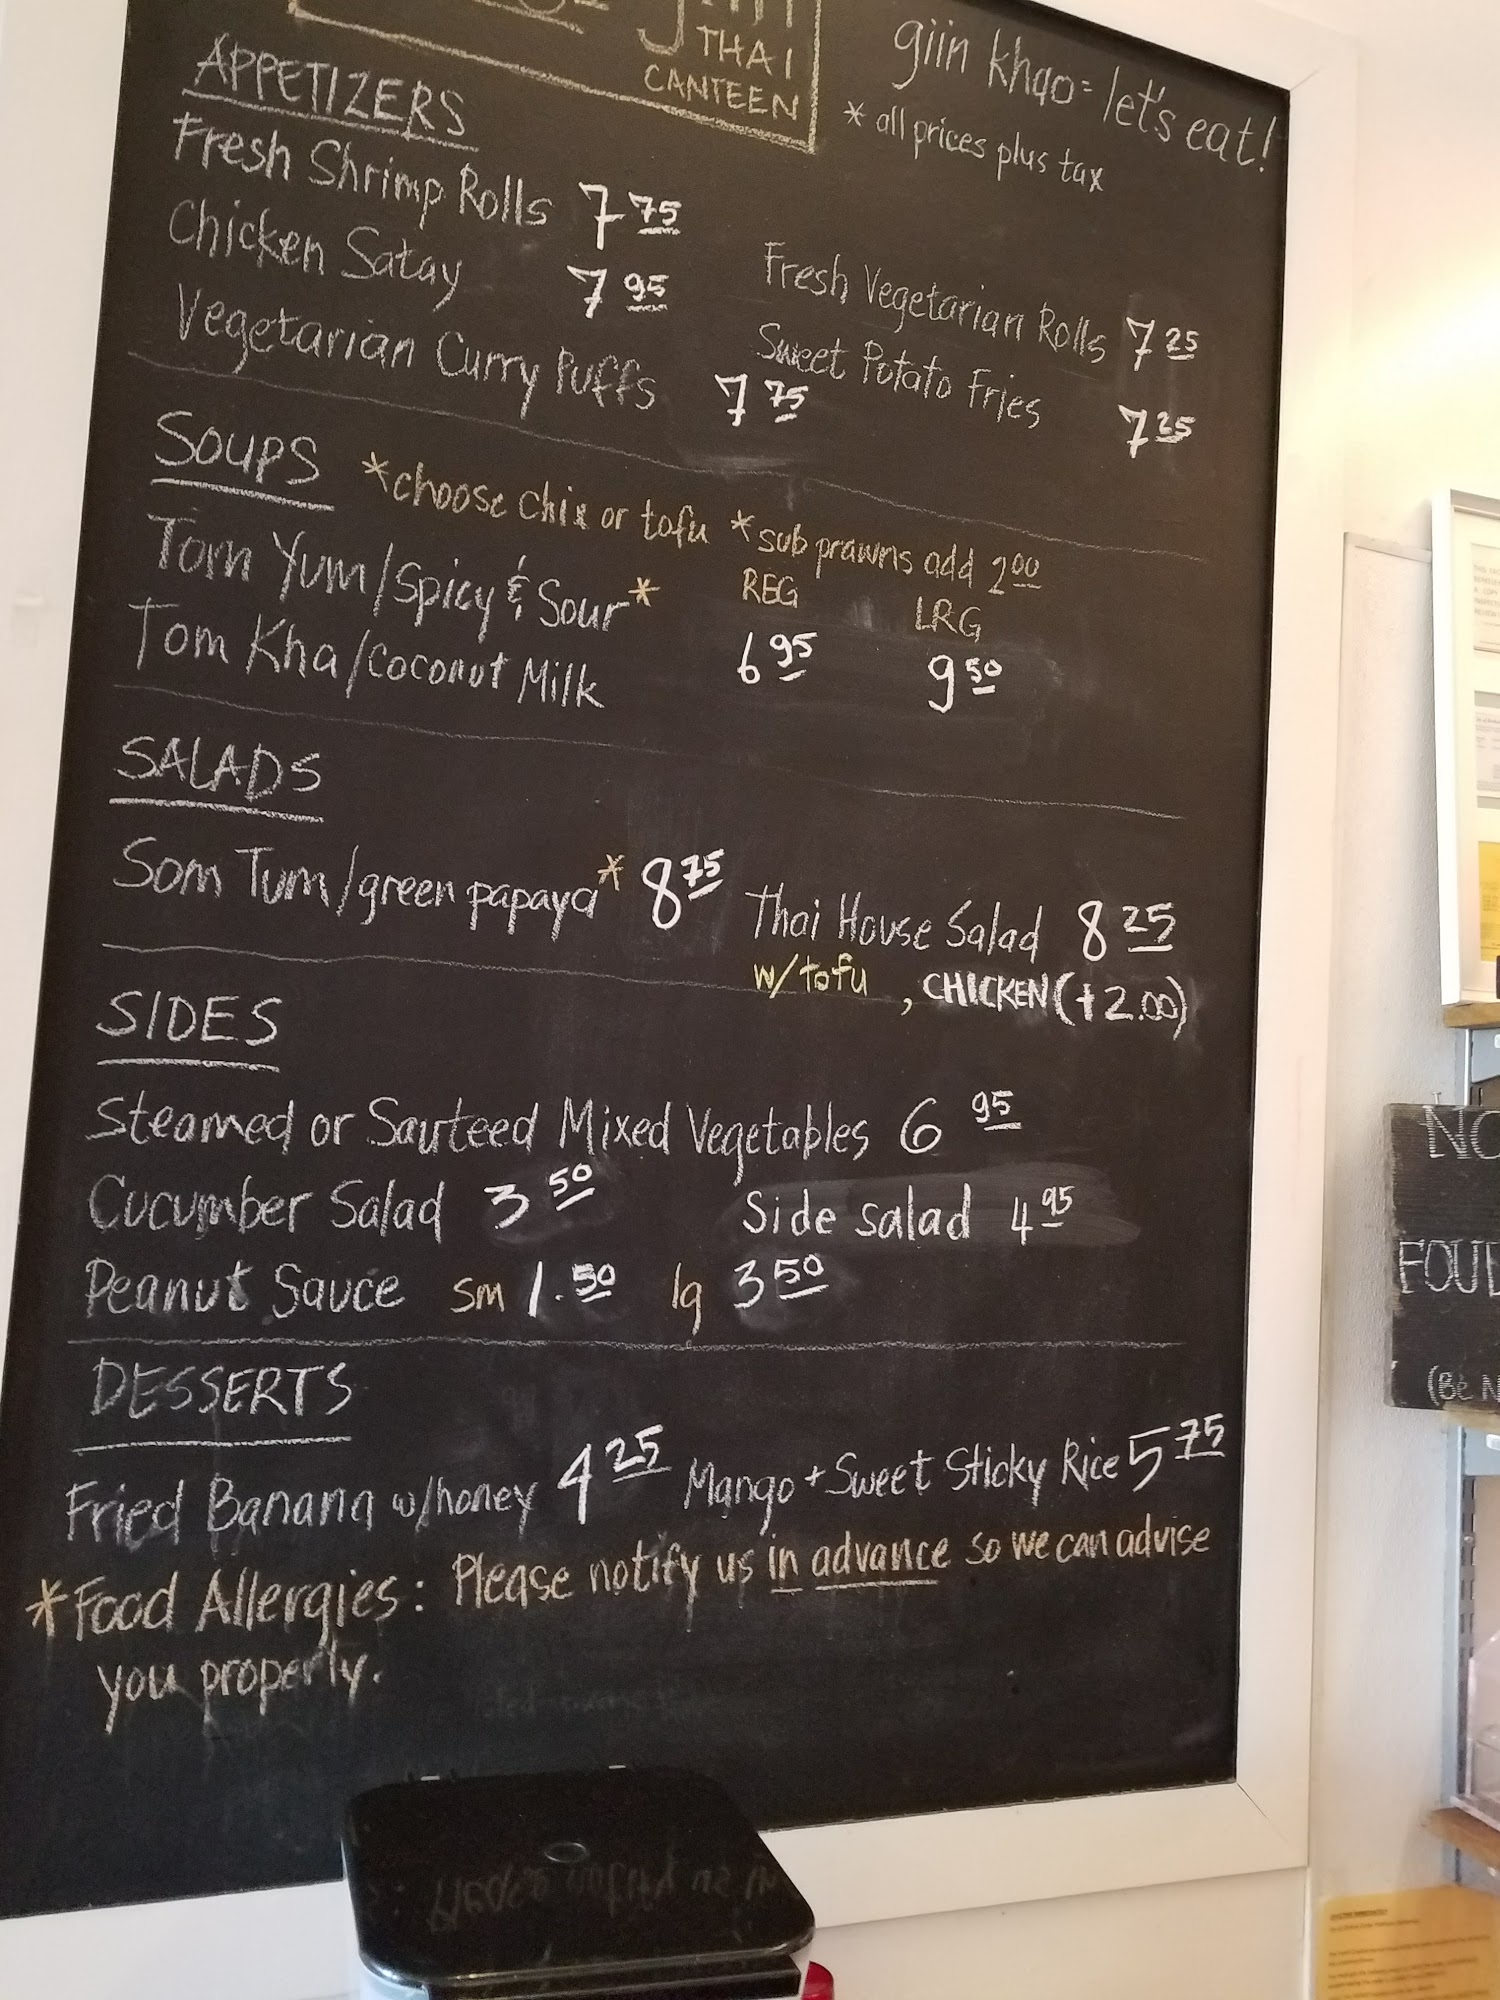 THAI
CANTEEN
giin khao = let's eat!
* all prices plus tax
APPETIZERS
Fresh Shrimp Rolls 7 75
Chicken Satay 7 95
Vegetarian Curry Puffs 7 75
Fresh Vegetarian Rolls 7 25
Sweet Potato Fries 7 25
SOUPS *choose chix or tofu *sub prawns add 2 00
REG LRG
Tom Yum/Spicy & Sour*
Tom Kha/Coconut Milk 6 95 9 50
SALADS
Som Tum/green papaya* 8 75
Thai House Salad 8 25
w/tofu, CHICKEN (+2.00)
SIDES
Steamed or Sauteed Mixed Vegetables 6 95
Cucumber Salad 3 50 Side salad 4 95
Peanut Sauce sm 1.50 lg 3 50
DESSERTS
Fried Banana w/honey 4 25 Mango + Sweet Sticky Rice 5 75
*Food Allergies: Please notify us in advance so we can advise
you properly.
NO
FOUL
(Be N